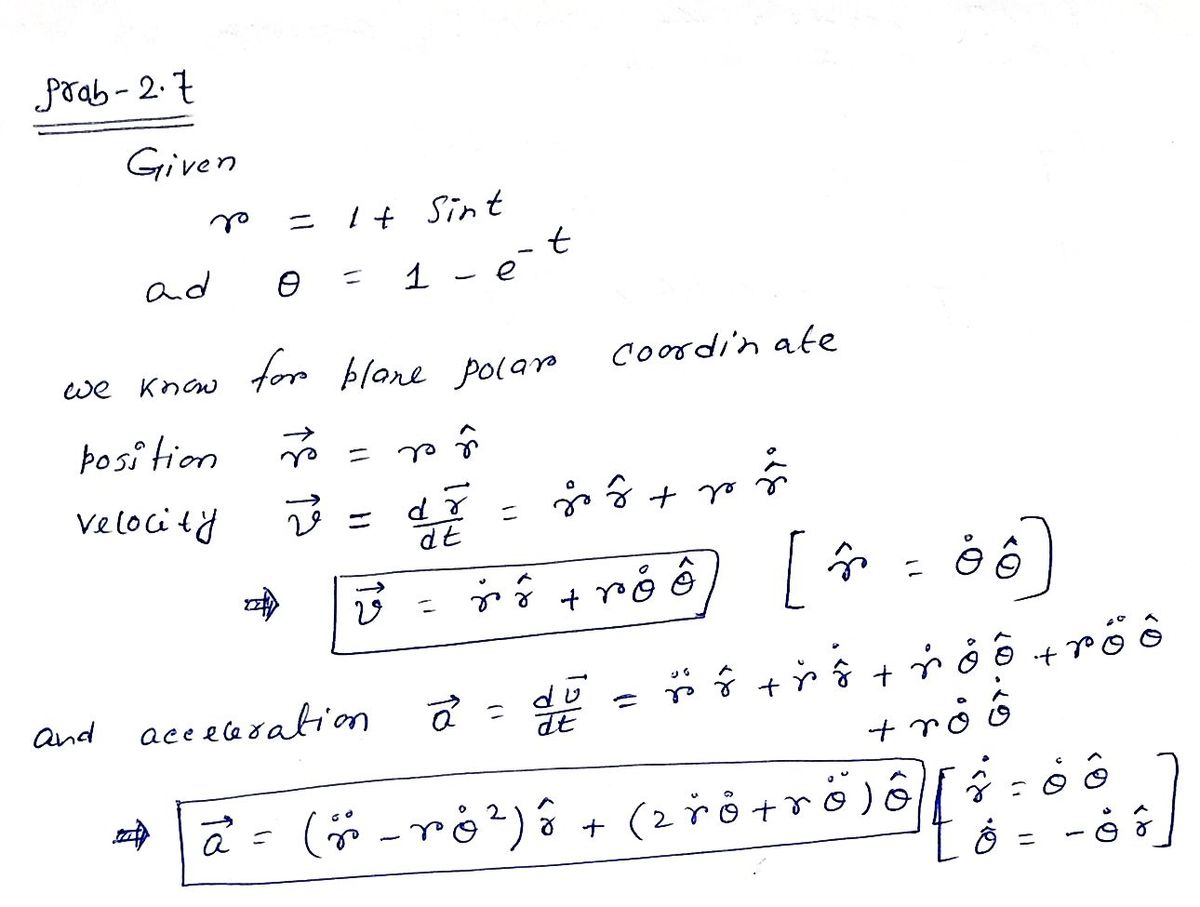 Prob-2.7
Given
r = 1 + Sint
and θ = 1 - e^-t
we know for plane polar coordinate
position r⃗ = r r̂
velocity v⃗ = dr⃗/dt = ṙ r̂ + r r̂̇
⇒ v⃗ = ṙ r̂ + r θ̇ θ̂ [ r̂ = θ̇ θ̂ ]
and acceleration a⃗ = dv⃗/dt = r̈ r̂ + ṙ r̂̇ + ṙ θ̇ θ̂ + r θ̈ θ̂
+ r θ̇ θ̂̇
⇒ a⃗ = (r̈ - r θ̇²) r̂ + (2 ṙ θ̇ + r θ̈) θ̂ [ r̂̇ = θ̇ θ̂
θ̂̇ = - θ̇ r̂ ]